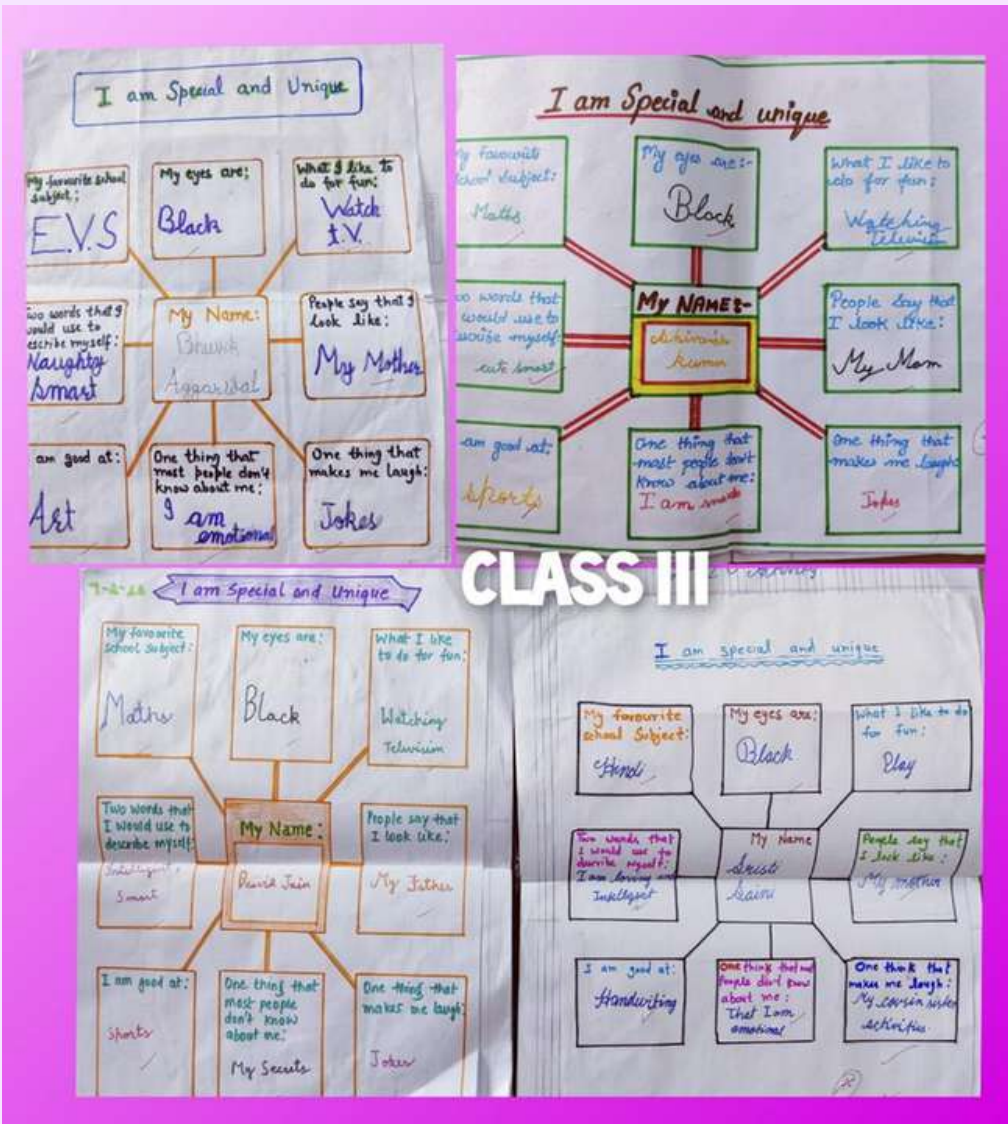 I am Special and Unique
My favourite school
subject:
E.V.S
My eyes are;
Black
What I like to
do for fun:
Watch
T.V.
Two words that I
would use to
escribe myself:
Naughty
Smart
My Name:
Aggarwal
People say that I
look like:
My Mother
am good at:
Art
One thing that
most people don't
know about me:
I am
emotional
One thing that
makes me laugh:
Jokes
I am Special and unique
My favourite
school subject:
Maths
My eyes are:-
Black
What I like to
do for fun:
Watching
Television
wo words that
would use to
myself:
cute smart
My NAME:-
Kumar
People Say that
I look like:
My Mom
am good at:
Sports
One thing that
most people don't
know about me:
I am
One thing that
makes me laugh
Jokes
CLASS III
I am Special and Unique
My favourite
school subject:
Maths
My eyes are:
Black
What I like
to do for fun:
Watching
Television
Two words that
I would use to
describe myself:
Intelligent,
Smart
My Name:
Jain
People say that
I look like:
My Father
I am good at:
Sports
One thing that
most people
don't know
about me:
My Secrets
One thing that
makes me laugh:
Jokes
I am special and unique
My favourite
school Subject:
Hindi
My eyes are:
Black
What I like to do
for fun:
Play
Two words that
I would use to
myself:
I am loving
My Name
Saini
People say that
I look like:
My mother
I am good at:
Handwriting
One think that
People don't know
about me:
That I am
emotional
One think that
makes me laugh:
My cousin sister
activities